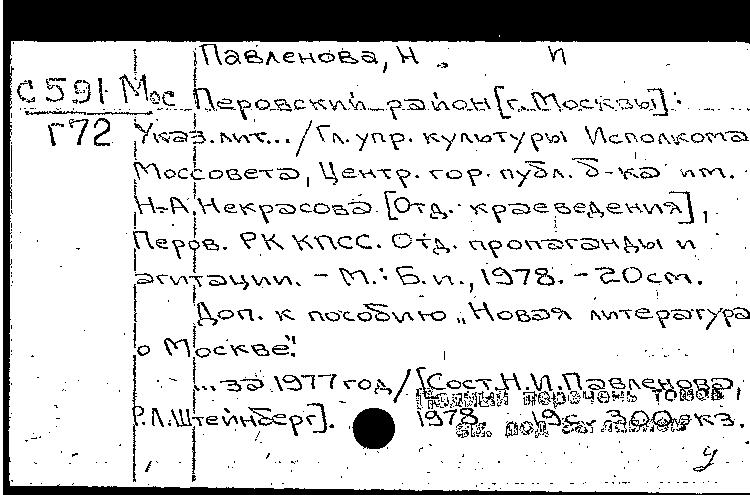 Павленова, Н. И
С591 Мос Перовский район [г. Москвы]:
Г72 Указ. лит... / Гл. упр. культуры Исполкома
Моссовета, Центр. гор. публ. б-ка им.
Н.А. Некрасова. [Отд. краеведения],
Перов. РК КПСС. Отд. пропаганды и
агитации. - М.: Б.и., 1978. - 20см.
Доп. к пособию „Новая литература
о Москве".
...за 1977 год / [Сост. Н.И. Павленова,
Полный перечень томов
Р.Л. Штейнберг]. 1978. 19с. 300экз.
см. под заглавием
У